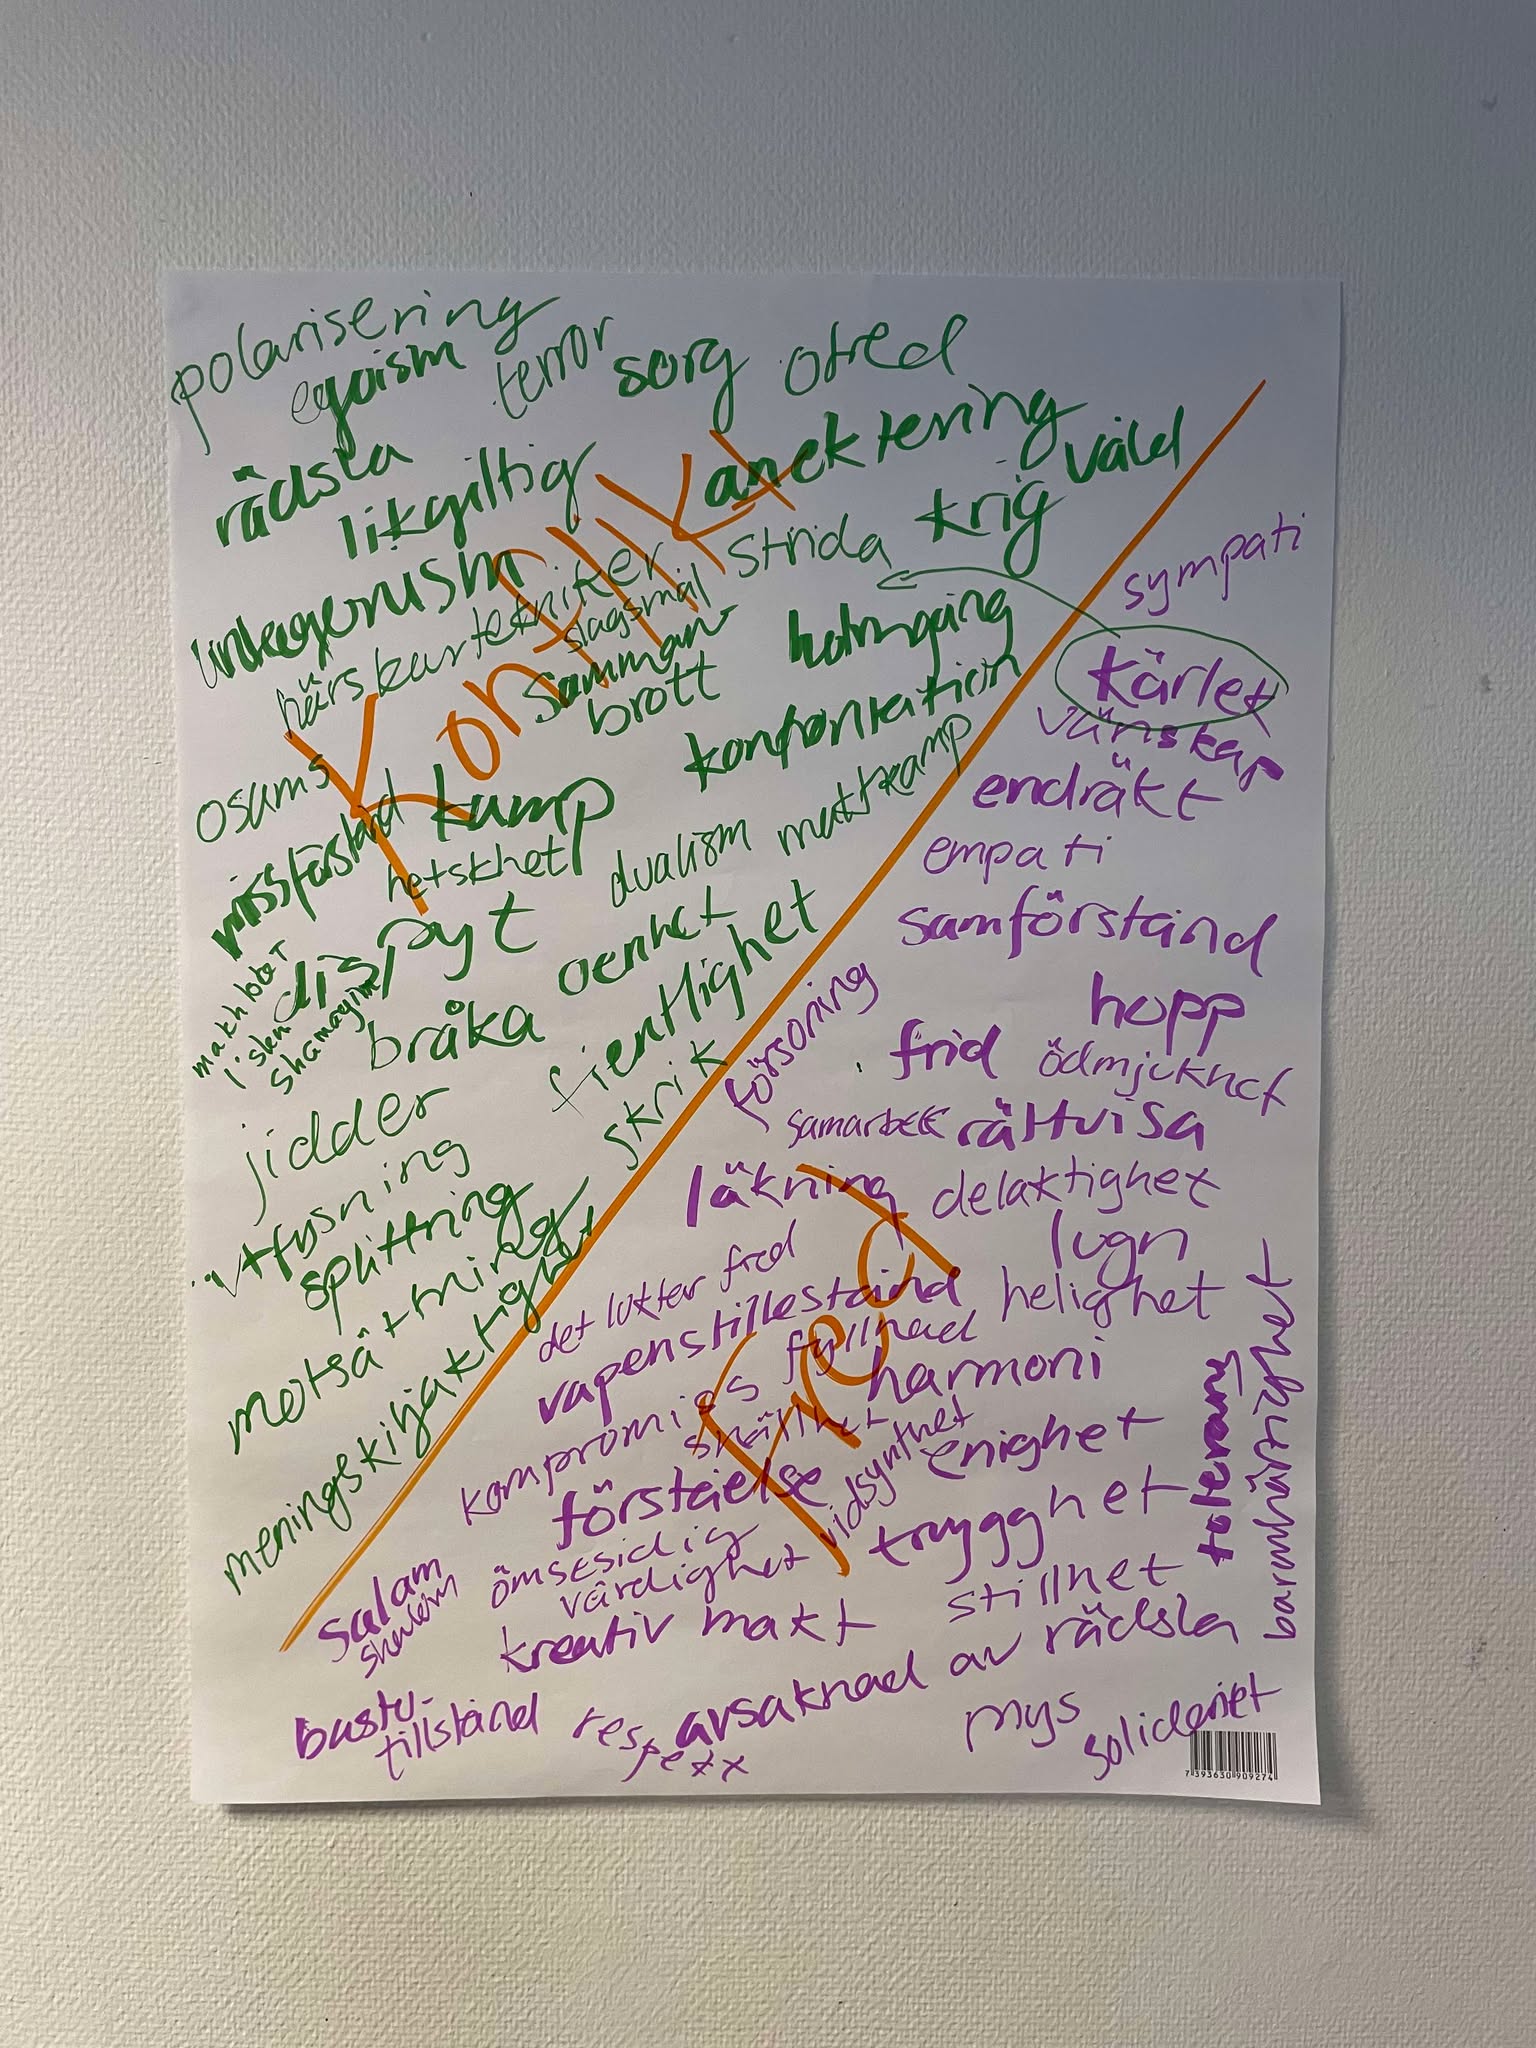 polarisering
egoism
terror
sorg
ofred
rädsla
likgiltig
anektering
våld
krig
Konflikt
härskartekniker
slagsmål
strida
samman-
brott
konfrontation
osams
missförstånd
kamp
hetskhet
dualism
maktkamp
dispyt
oenhet
fientlighet
bråka
skrik
jidder
utfrysning
splittring
motsättning
meningskiljaktighet
sympati
kärlek
vänskap
endräkt
empati
samförstånd
försoning
hopp
frid
ödmjukhet
samarbete
rättvisa
läkning
delaktighet
lugn
det luktar fred
vapenstillestånd
helighet
fyllnad
Fred
harmoni
kompromiss
snällhet
vidsynthet
enighet
förståelse
tolerans
barmhärtighet
ömsesidig
värdighet
trygghet
salam
shalom
kreativ makt
stillhet
avsaknad av rädsla
bastu-
tillstånd
respekt
mys
solidaritet
7 393630 909274